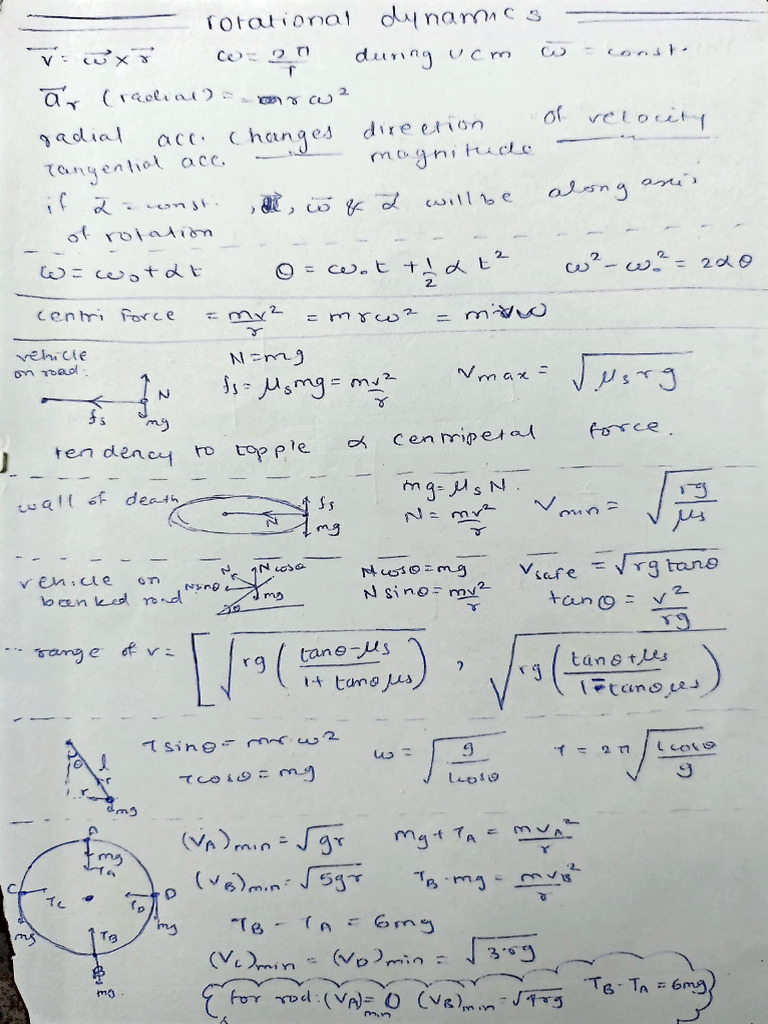 rotational dynamics
v⃗ = ω⃗ × r⃗ ω = 2π/T during UCM ω⃗ = const.
a⃗r (radial) = -rω²
radial acc. changes direction of velocity
Tangential acc. —— magnitude ——
if α⃗ = const. , ω⃗ & α⃗ will be along axis
of rotation
ω = ω₀ + αt θ = ω₀t + 1/2 αt² ω² - ω₀² = 2αθ
centri force = mv²/r = mrω² = mvω
vehicle on road: N = mg
fs = μs mg = mv²/r Vmax = √(μs rg)
fs N mg
tendency to topple ∝ centripetal force.
wall of death N fs mg mg = μs N.
N = mv²/r Vmin = √(rg/μs)
vehicle on banked road N Ncosθ Nsinθ mg θ
Ncosθ = mg Vsafe = √(rg tanθ)
Nsinθ = mv²/r tanθ = v²/rg
range of v = [√(rg((tanθ-μs)/(1+tanθμs))) , √(rg((tanθ+μs)/(1-tanθμs)))
θ l T r mg
Tsinθ = mrω² ω = √(g/lcosθ) T = 2π√(lcosθ/g)
Tcosθ = mg
A mg TA C TC mg D TD mg TB B mg
(VA)min = √gr mg + TA = mVA²/r
(VB)min = √5gr TB - mg = mVB²/r
TB - TA = 6mg
(VC)min = (VD)min = √3rg
for rod: (VA)min = 0 (VB)min = √4rg TB - TA = 6mg